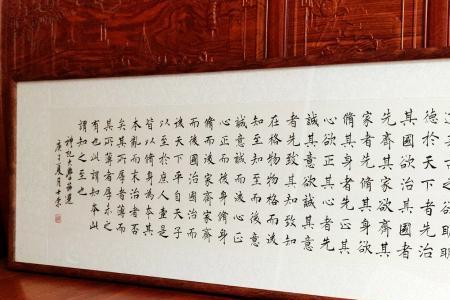 之欲明明
德於天下者先治
其國欲治其國者
先齊其家欲齊其
家者先脩其身欲
脩其身者先正其
心欲正其心者先
誠其意欲誠其意
者先致其知致知
在格物物格而後
知至知至而後意
誠意誠而後心正
心正而後身脩身
脩而後家齊家齊
而後國治國治而
後天下平自天子
以至於庶人壹是
皆以脩身為本其
本亂而末治者否
矣其所厚者薄而
其所薄者厚未之
有也此謂知本此
謂知之至也
禮記大學節選
庚子夏月